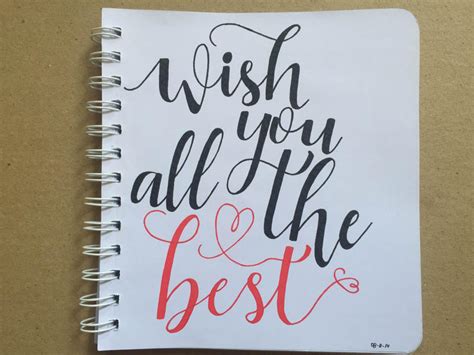 wish
you
all the
best